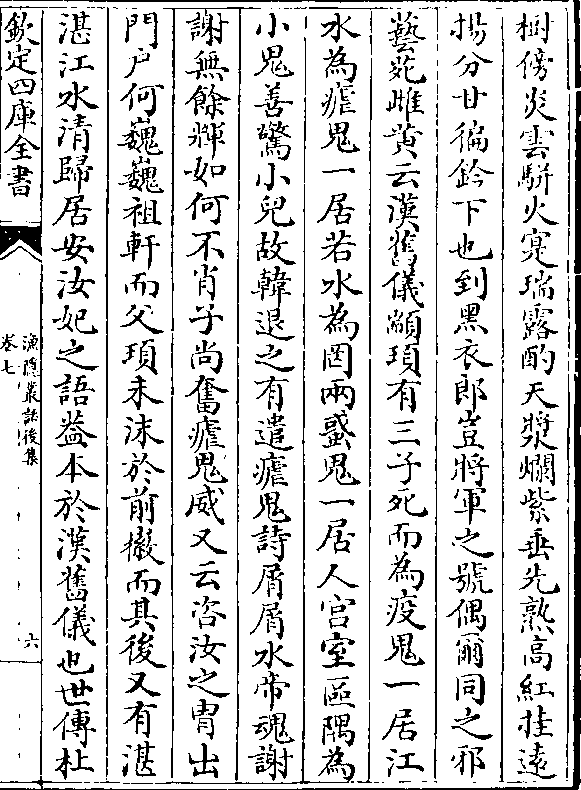 樹傍炎雲駢火寔瑞露酌天漿爛紫垂先熟高紅挂逺
揚分甘徧鈴下也到黑衣郎豈將軍之號偶爾同之邪
藝苑雌黄云漢舊儀顓頊有三子死而為疫鬼一居江
水為瘧鬼一居若水為罔兩蜮鬼一居人宫室區隅為
小鬼善驚小兒故韓退之有遣瘧鬼詩屑屑水帝魂謝
謝無餘輝如何不肖子尚奮瘧鬼威又云咨汝之胄出
門户何巍巍祖軒而父頊未沬於前徽而其後又有湛
湛江水清歸居安汝妃之語葢本於漢舊儀也世傳杜
欽定四庫全書
漁隠叢話後集
卷七
六